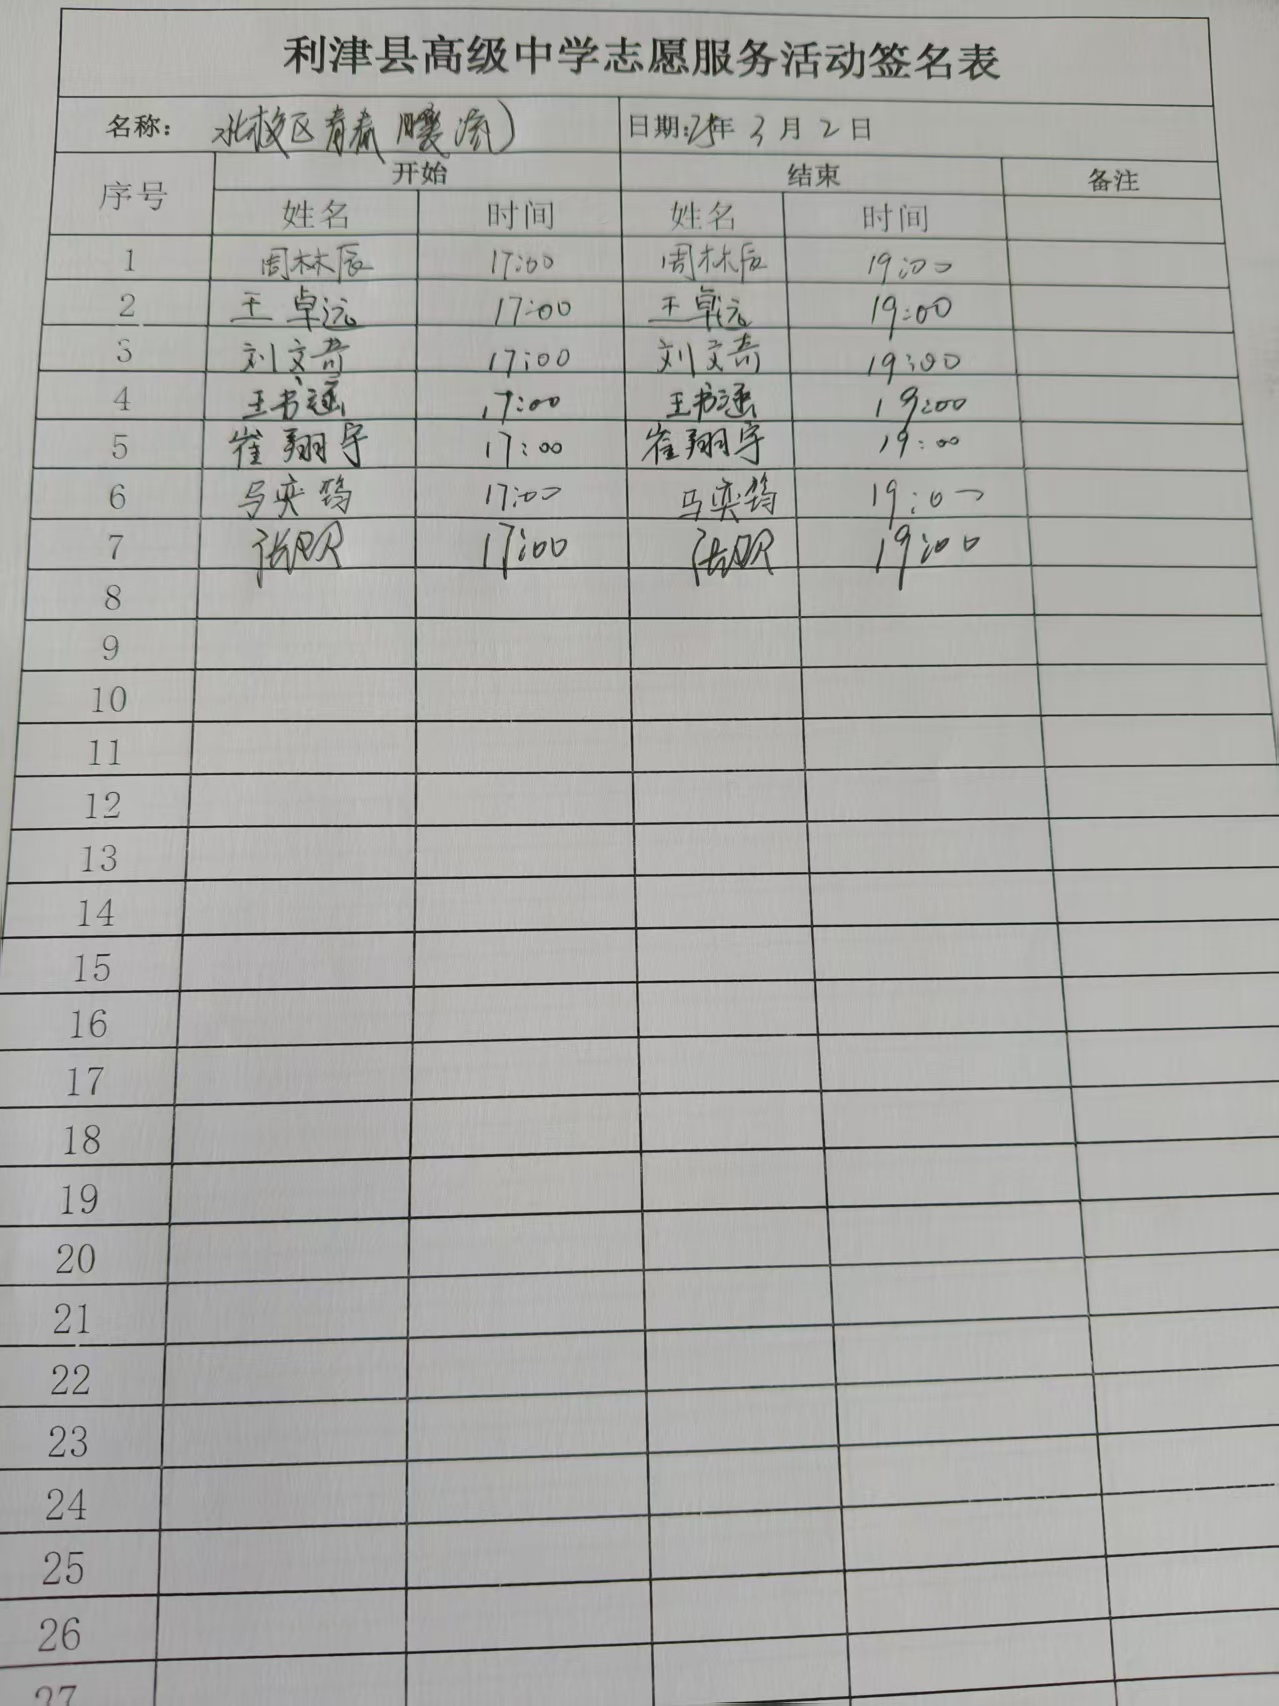 利津县高级中学志愿服务活动签名表
名称： 北校区青春暖流） 日期：25年 3月2日
序号 开始 结束 备注
姓名 时间 姓名 时间
1 周林辰 17:00 周林辰 19:00
2 王卓远 17:00 王卓远 19:00
3 刘文 17:00 刘文 19:00
4 王书涵 17:00 王书涵 19:00
5 崔翔宇 17:00 崔翔宇 19:00
6 马奕 17:00 马奕 19:00
7 张 17:00 张 19:00
8
9
10
11
12
13
14
15
16
17
18
19
20
21
22
23
24
25
26
27